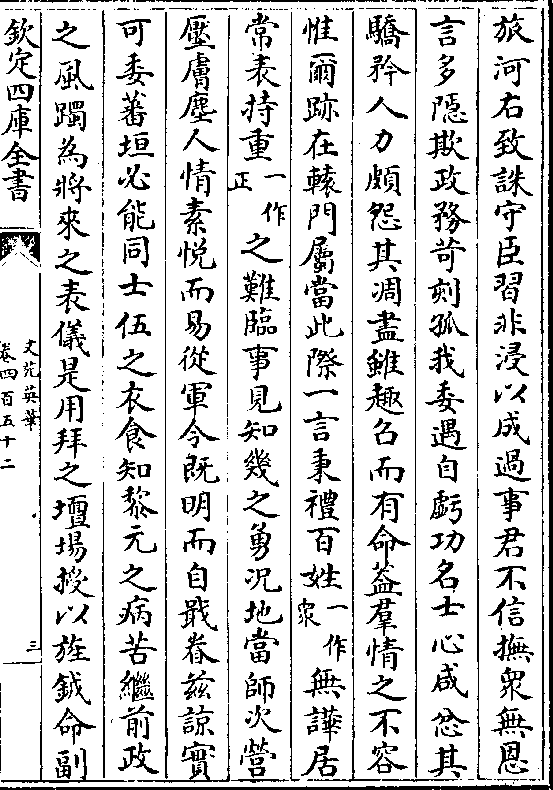 旅河右致誅守臣習非浸以成過事君不信撫衆無恩
言多隱欺政務苛刻孤我委遇自虧功名士心咸忿其
驕矜人力頗怨其凋盡雖趣召而有命葢羣情之不容
惟爾跡在轅門屬當此際一言秉禮百姓一作衆無譁居
常表持重一作正之難臨事見知幾之勇況地當師次營
壓膚塵人情素悦而易從軍令既明而自戢眷兹諒實
可委蕃垣必能同士伍之衣食知黎元之病苦繼前政
之風躅為將來之表儀是用拜之壇場授以旌鉞命副
欽定四庫全書
文苑英華
卷四百五十二
三